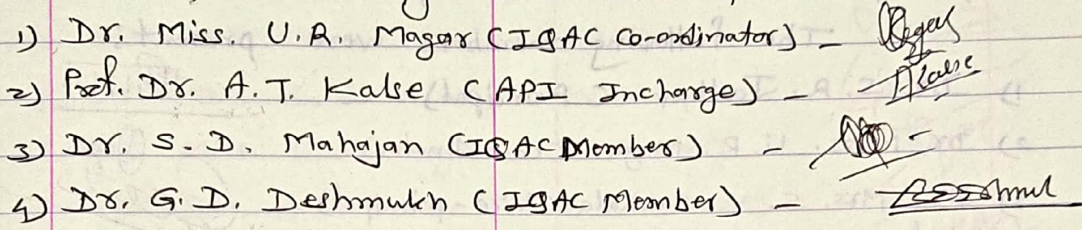 1) Dr. Miss. U. R. Magar (IQAC Co-ordinator) -
2) Prof. Dr. A. T. Kalse (API Incharge) - AKalse
3) Dr. S. D. Mahajan (IQAC Member) -
4) Dr. G. D. Deshmukh (IQAC Member) -